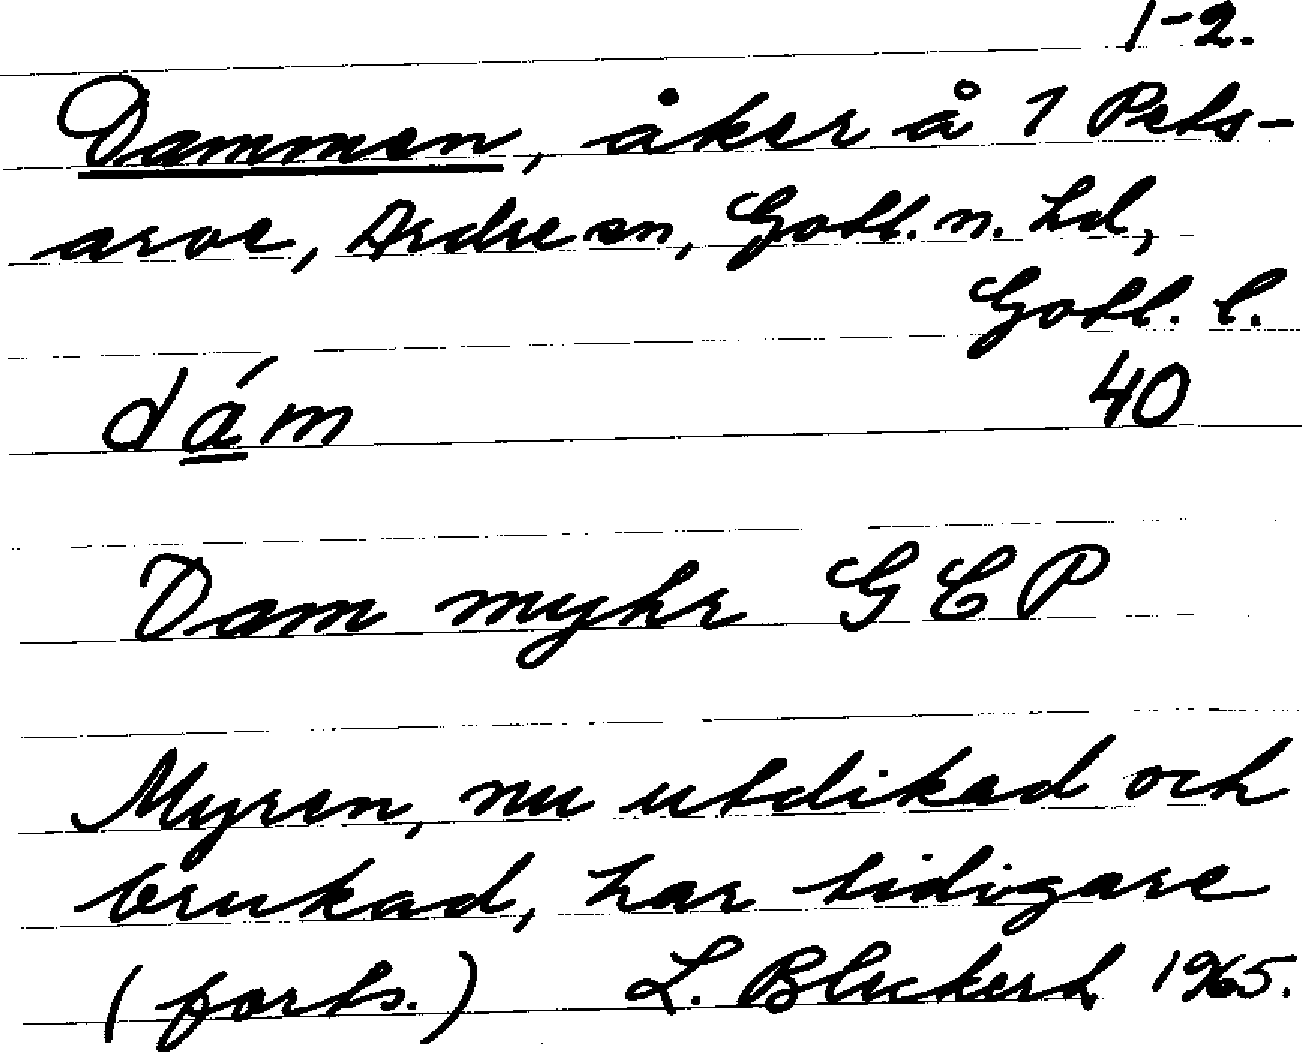 1-2.
Dammen, åker å 1 Pets-
arve, Ardre sn, Gotl. n. hd,
Gotl. l.
dá̲m 40
Dam myhr GCP
Myren, nu utdikad och
brukad, har tidigare
(forts.) L. Bleckert 1965.